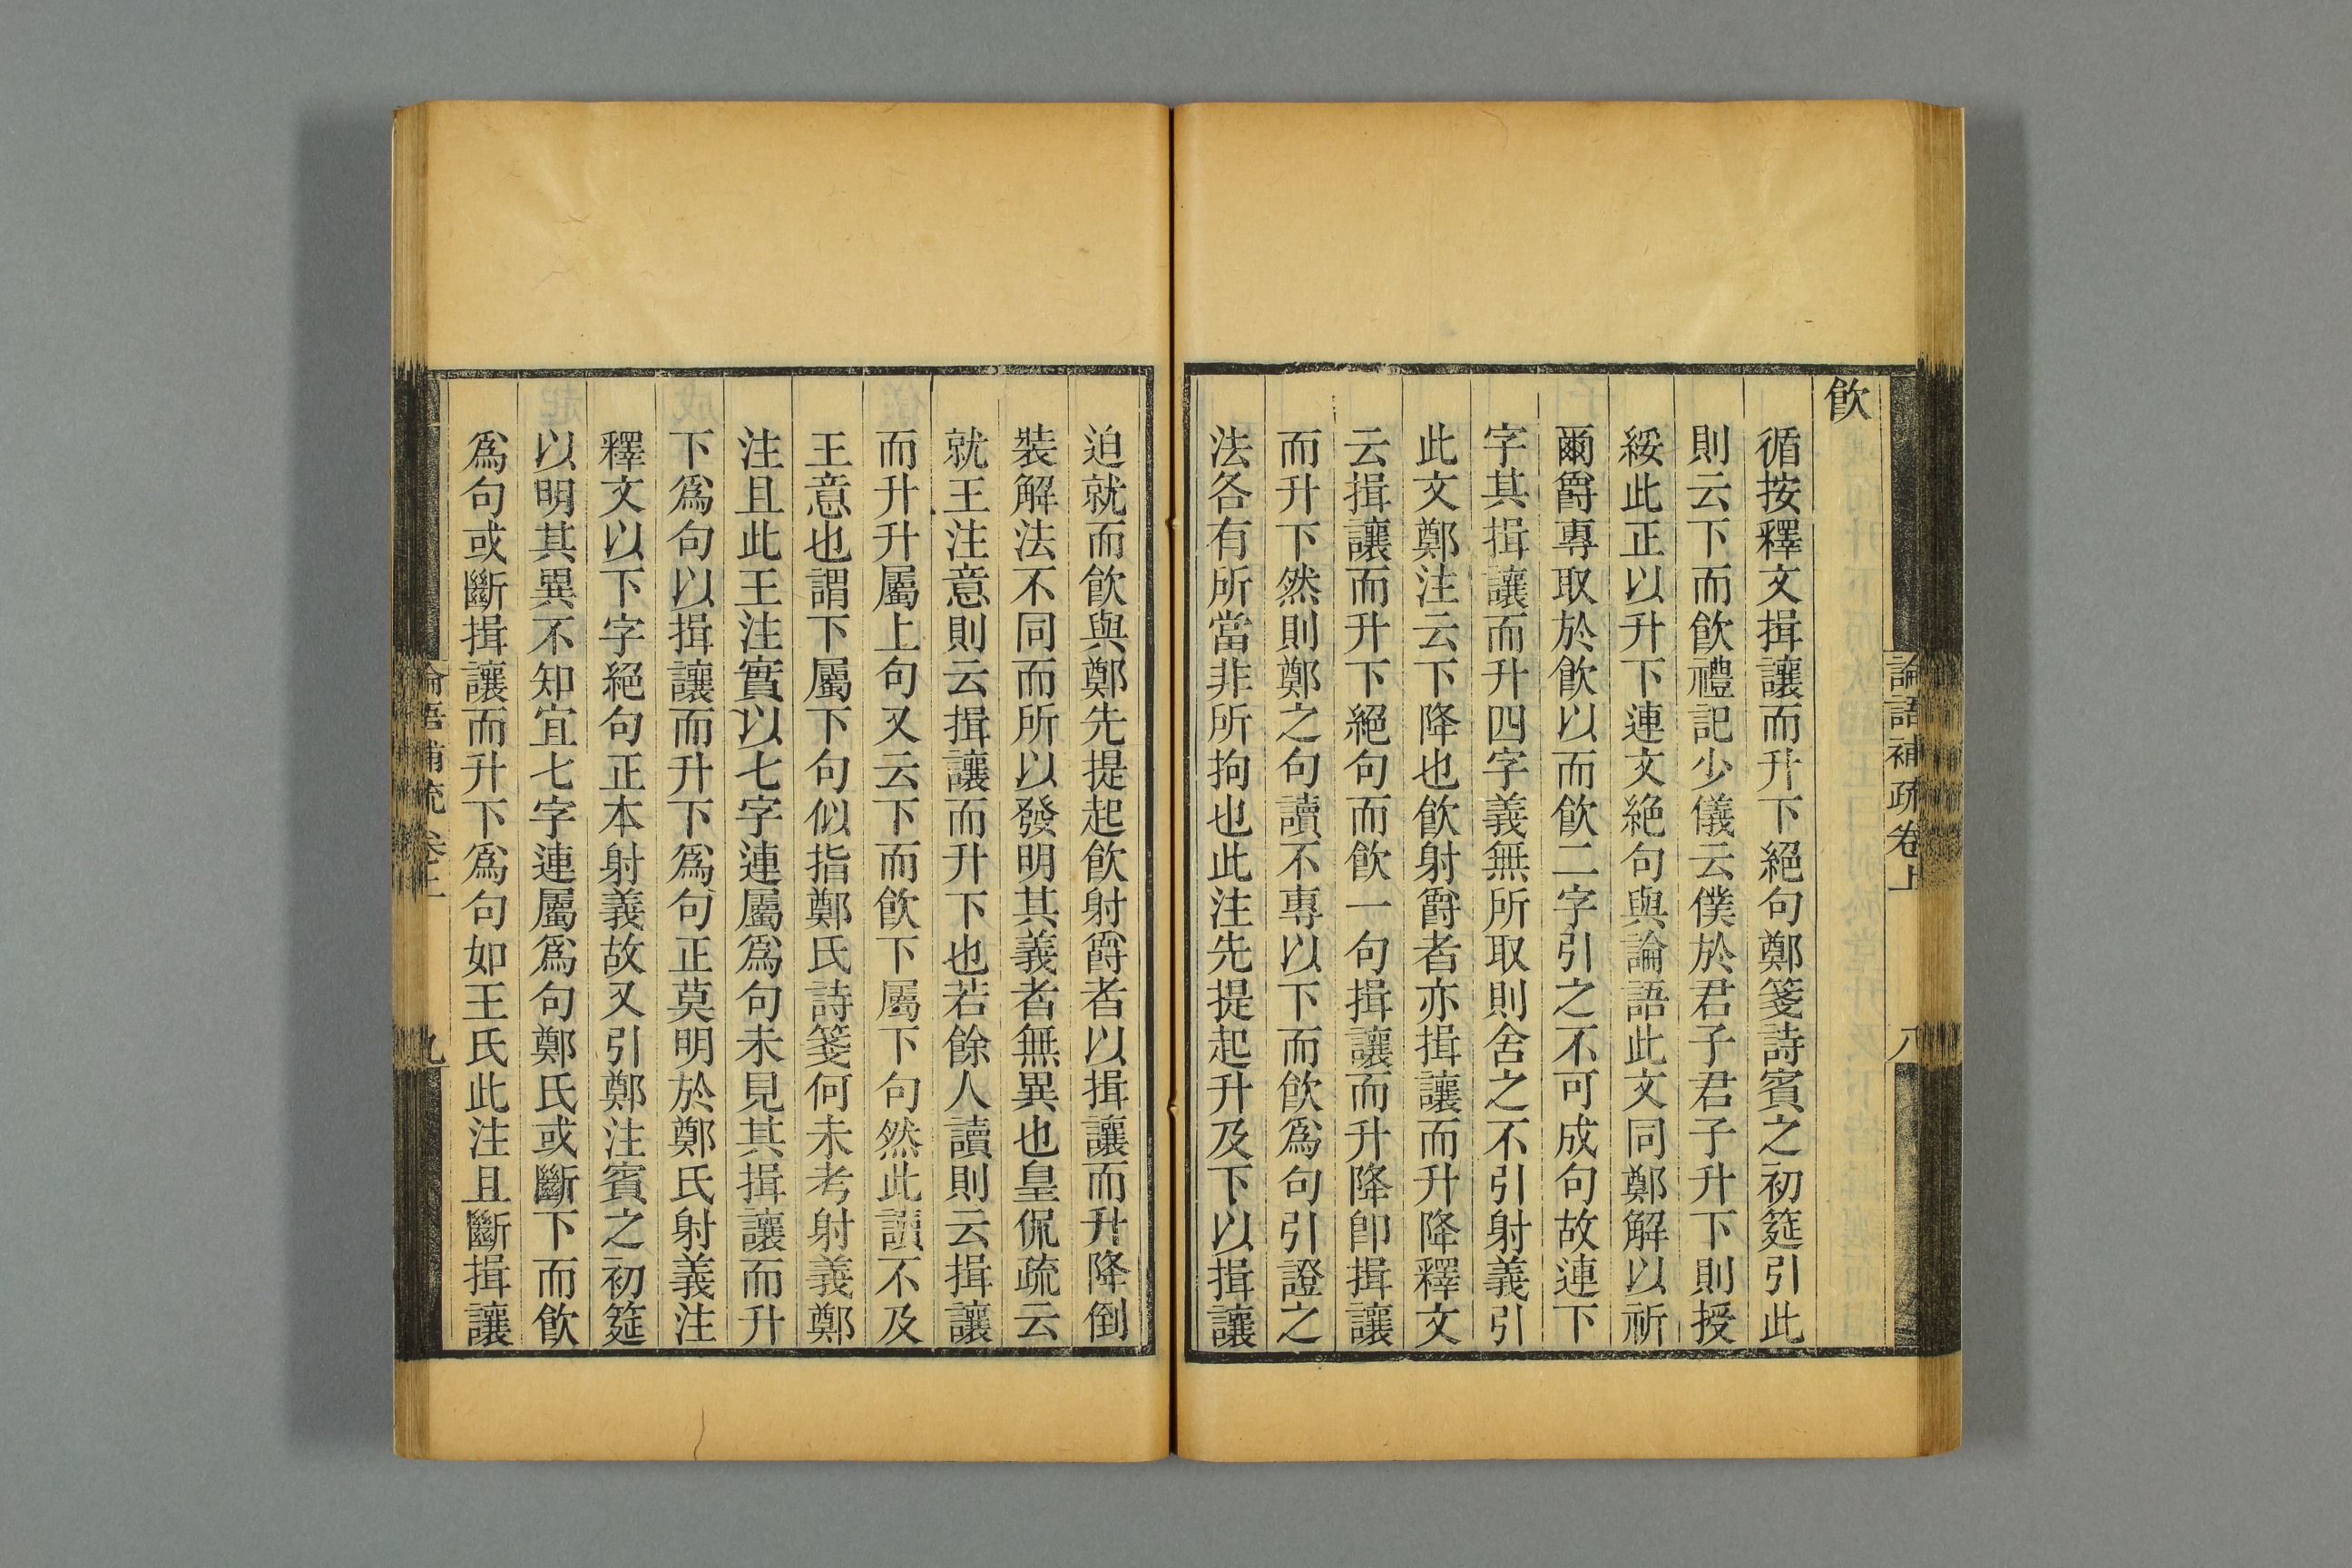 論語補疏卷上
八
飲
循按釋文揖讓而升下絕句鄭箋詩賓之初筵引此
則云下而飲禮記少儀云僕於君子君子升下則授
綏此正以升下連文絕句與論語此文同鄭解以祈
爾爵專取於飲以而飲二字引之不可成句故連下
字其揖讓而升四字義無所取則舍之不引射義引
此文鄭注云下降也飲射爵者亦揖讓而升降釋文
云揖讓而升下絕句而飲一句揖讓而升降卽揖讓
而升下然則鄭之句讀不專以下而飲爲句引證之
法各有所當非所拘也此注先提起升及下以揖讓
迫就而飲與鄭先提起飲射爵者以揖讓而升降倒
裝解法不同而所以發明其義者無異也皇侃疏云
就王注意則云揖讓而升下也若餘人讀則云揖讓
而升升屬上句又云下而飲下屬下句然此讀不及
王意也謂下屬下句似指鄭氏詩箋何未考射義鄭
注且此王注實以七字連屬爲句未見其揖讓而升
下爲句以揖讓而升下爲句正莫明於鄭氏射義注
釋文以下字絕句正本射義故又引鄭注賓之初筵
以明其異不知宜七字連屬爲句鄭氏或斷下而飲
爲句或斷揖讓而升下爲句如王氏此注且斷揖讓
論語補疏卷上
九